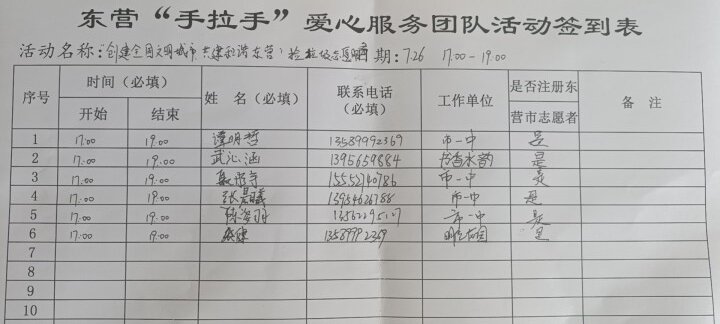 东营“手拉手”爱心服务团队活动签到表
活动名称：“创建全国文明城市 共建和谐东营” 捡拾垃圾志愿 期：7.26 17:00-19:00
序号 时间（必填） 姓 名（必填） 联系电话（必填） 工作单位 是否注册东营市志愿者 备 注
开始 结束
1 17:00 19:00 谭明哲 13589992369 市一中 是
2 17:00 19:00 武沁涵 1395659884 书香水韵 是
3 17:00 19:00 15552740786 市一中 是
4 17:00 19:00 张晨曦 13954626788 市一中 是
5 17:00 19:00 市一中 是
6 17:00 19:00 13589992369 是
7
8
9
10